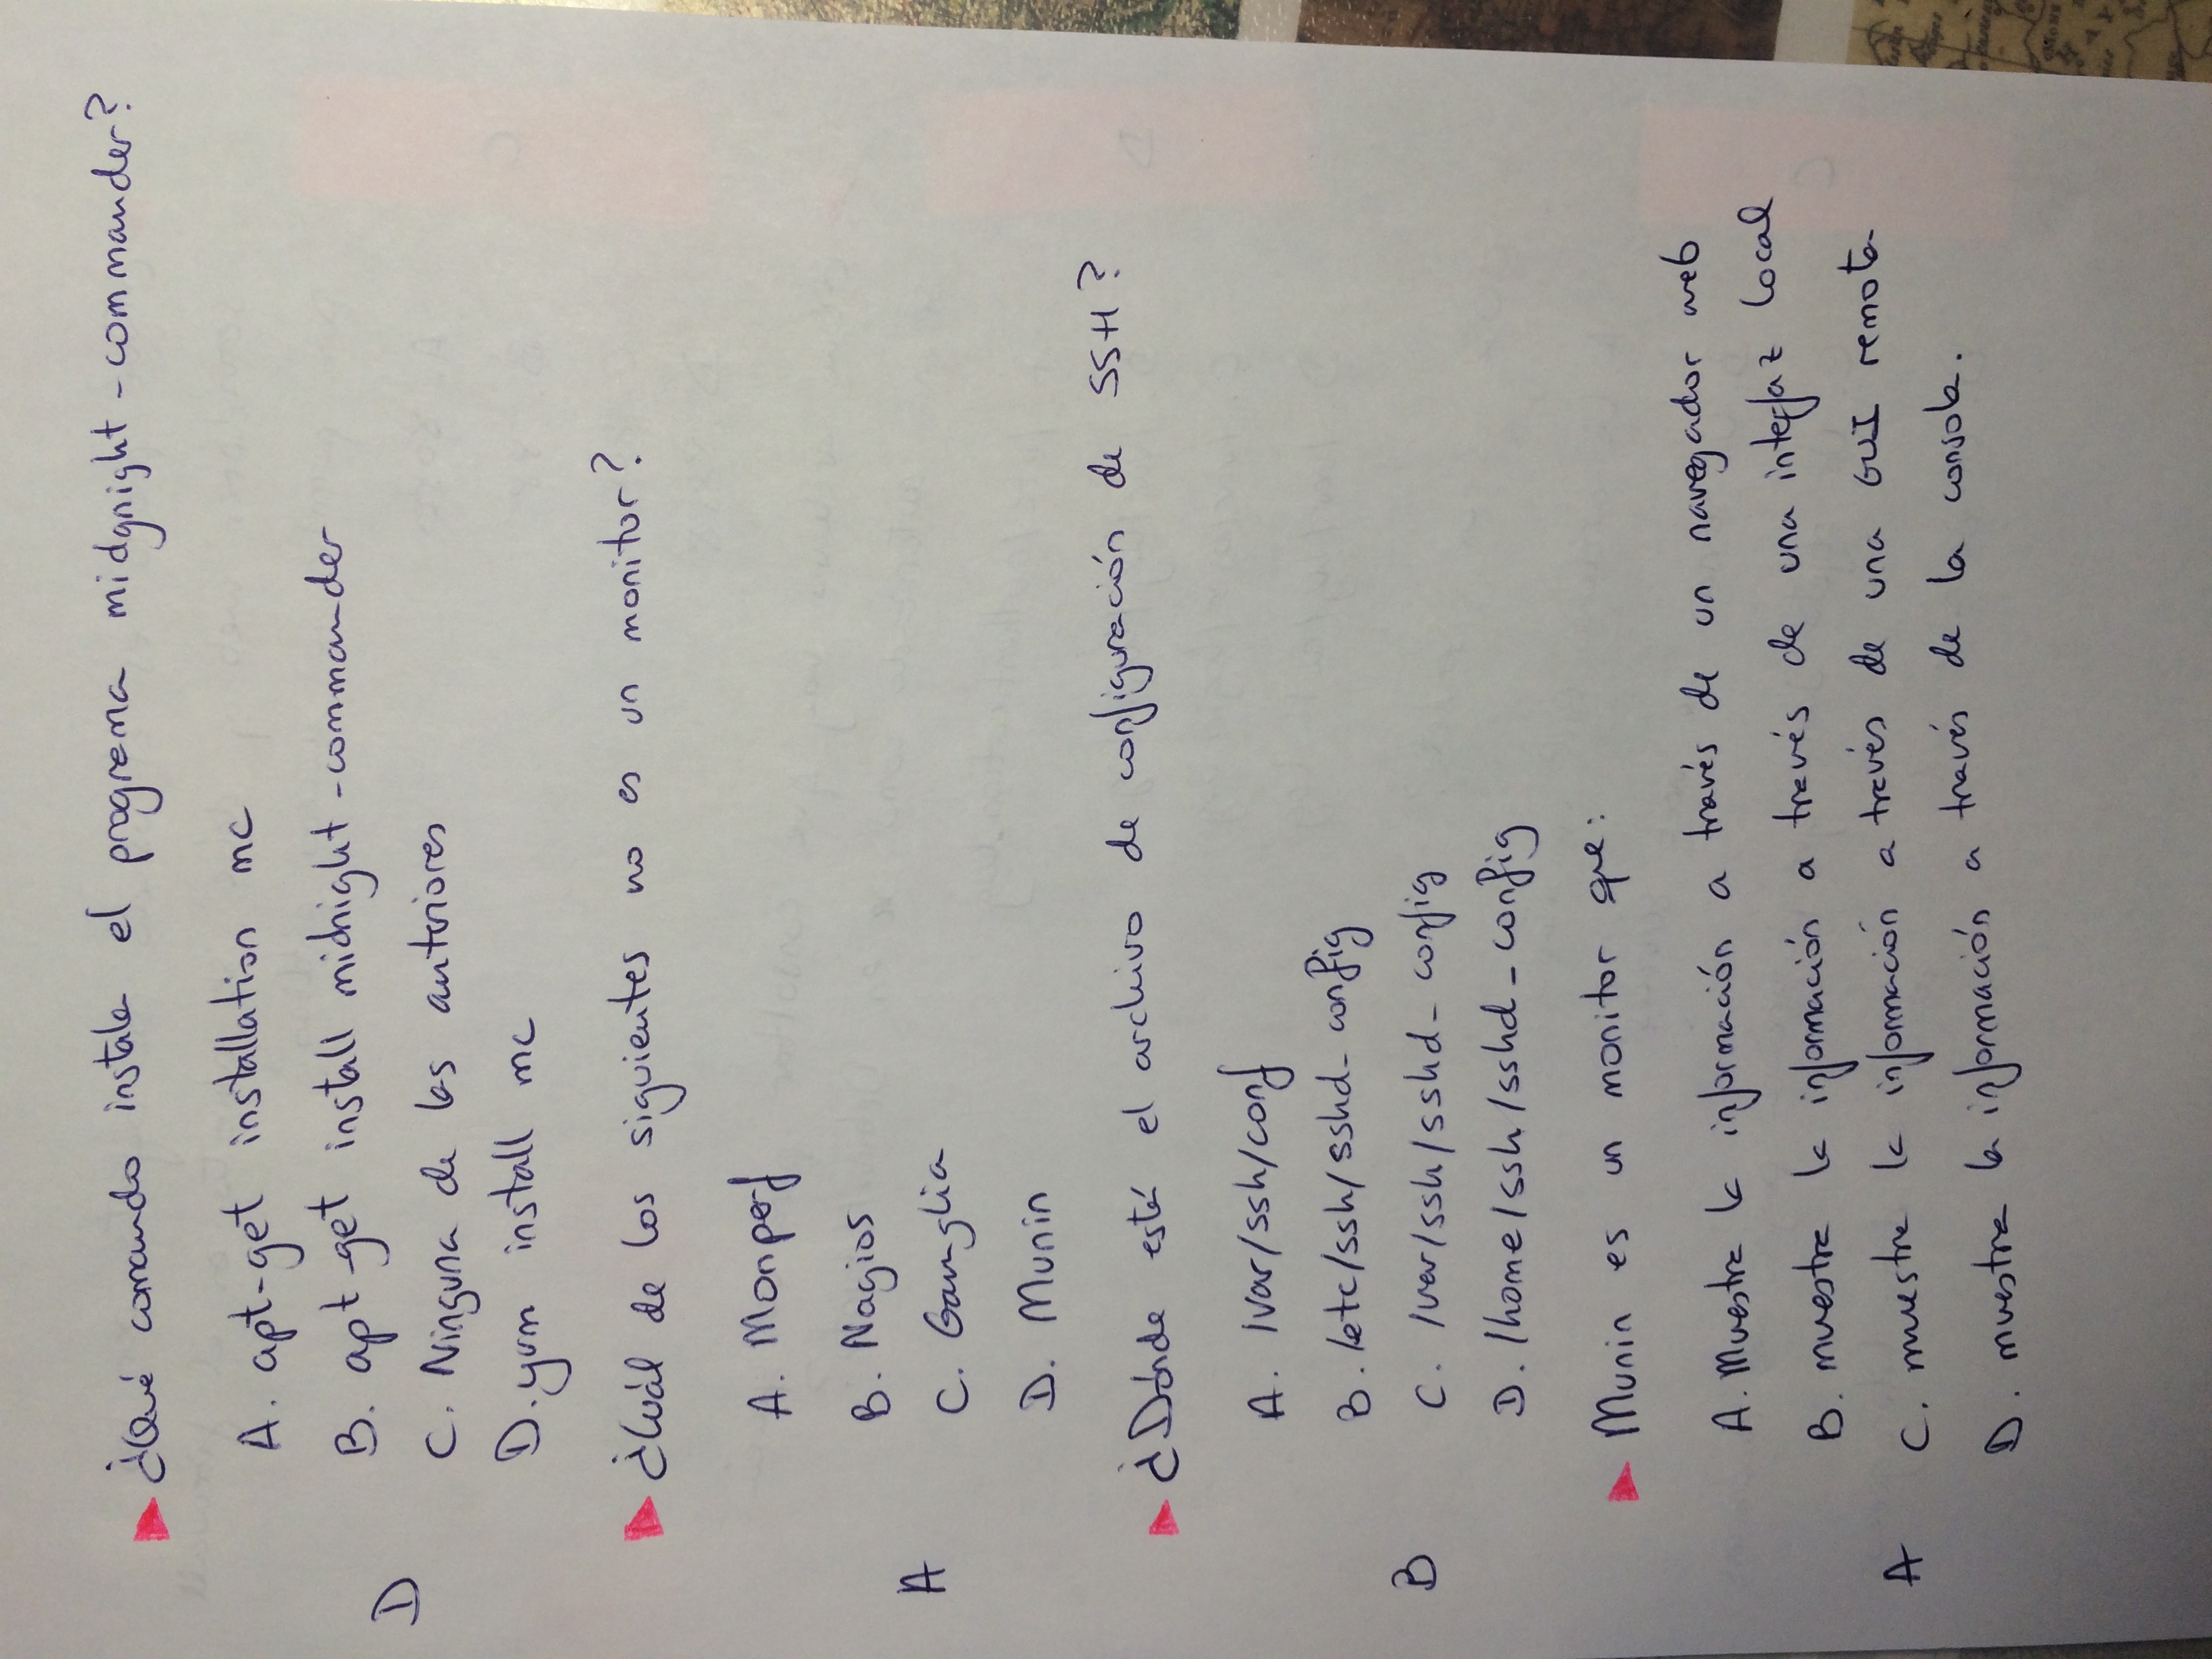 ¿Qué comando instala el programa midgnight-commander?
A. apt-get installation mc
B. apt-get install midnight-commander
D
C. Ninguna de las anteriores
D. yum install mc
¿Cuál de los siguientes no es un monitor?
A. Monperf
B. Nagios
A
C. Ganglia
D. Munin
¿Dónde está el archivo de configuración de SSH?
A. /var/ssh/conf
B. /etc/ssh/sshd_config
B
C. /var/ssh/sshd_config
D. /home/ssh/sshd_config
Munin es un monitor que:
A. Muestra la información a través de un navegador web
B. muestra la información a través de una interfaz local
A
C. muestra la información a través de una GUI remota
D. muestra la información a través de la consola.